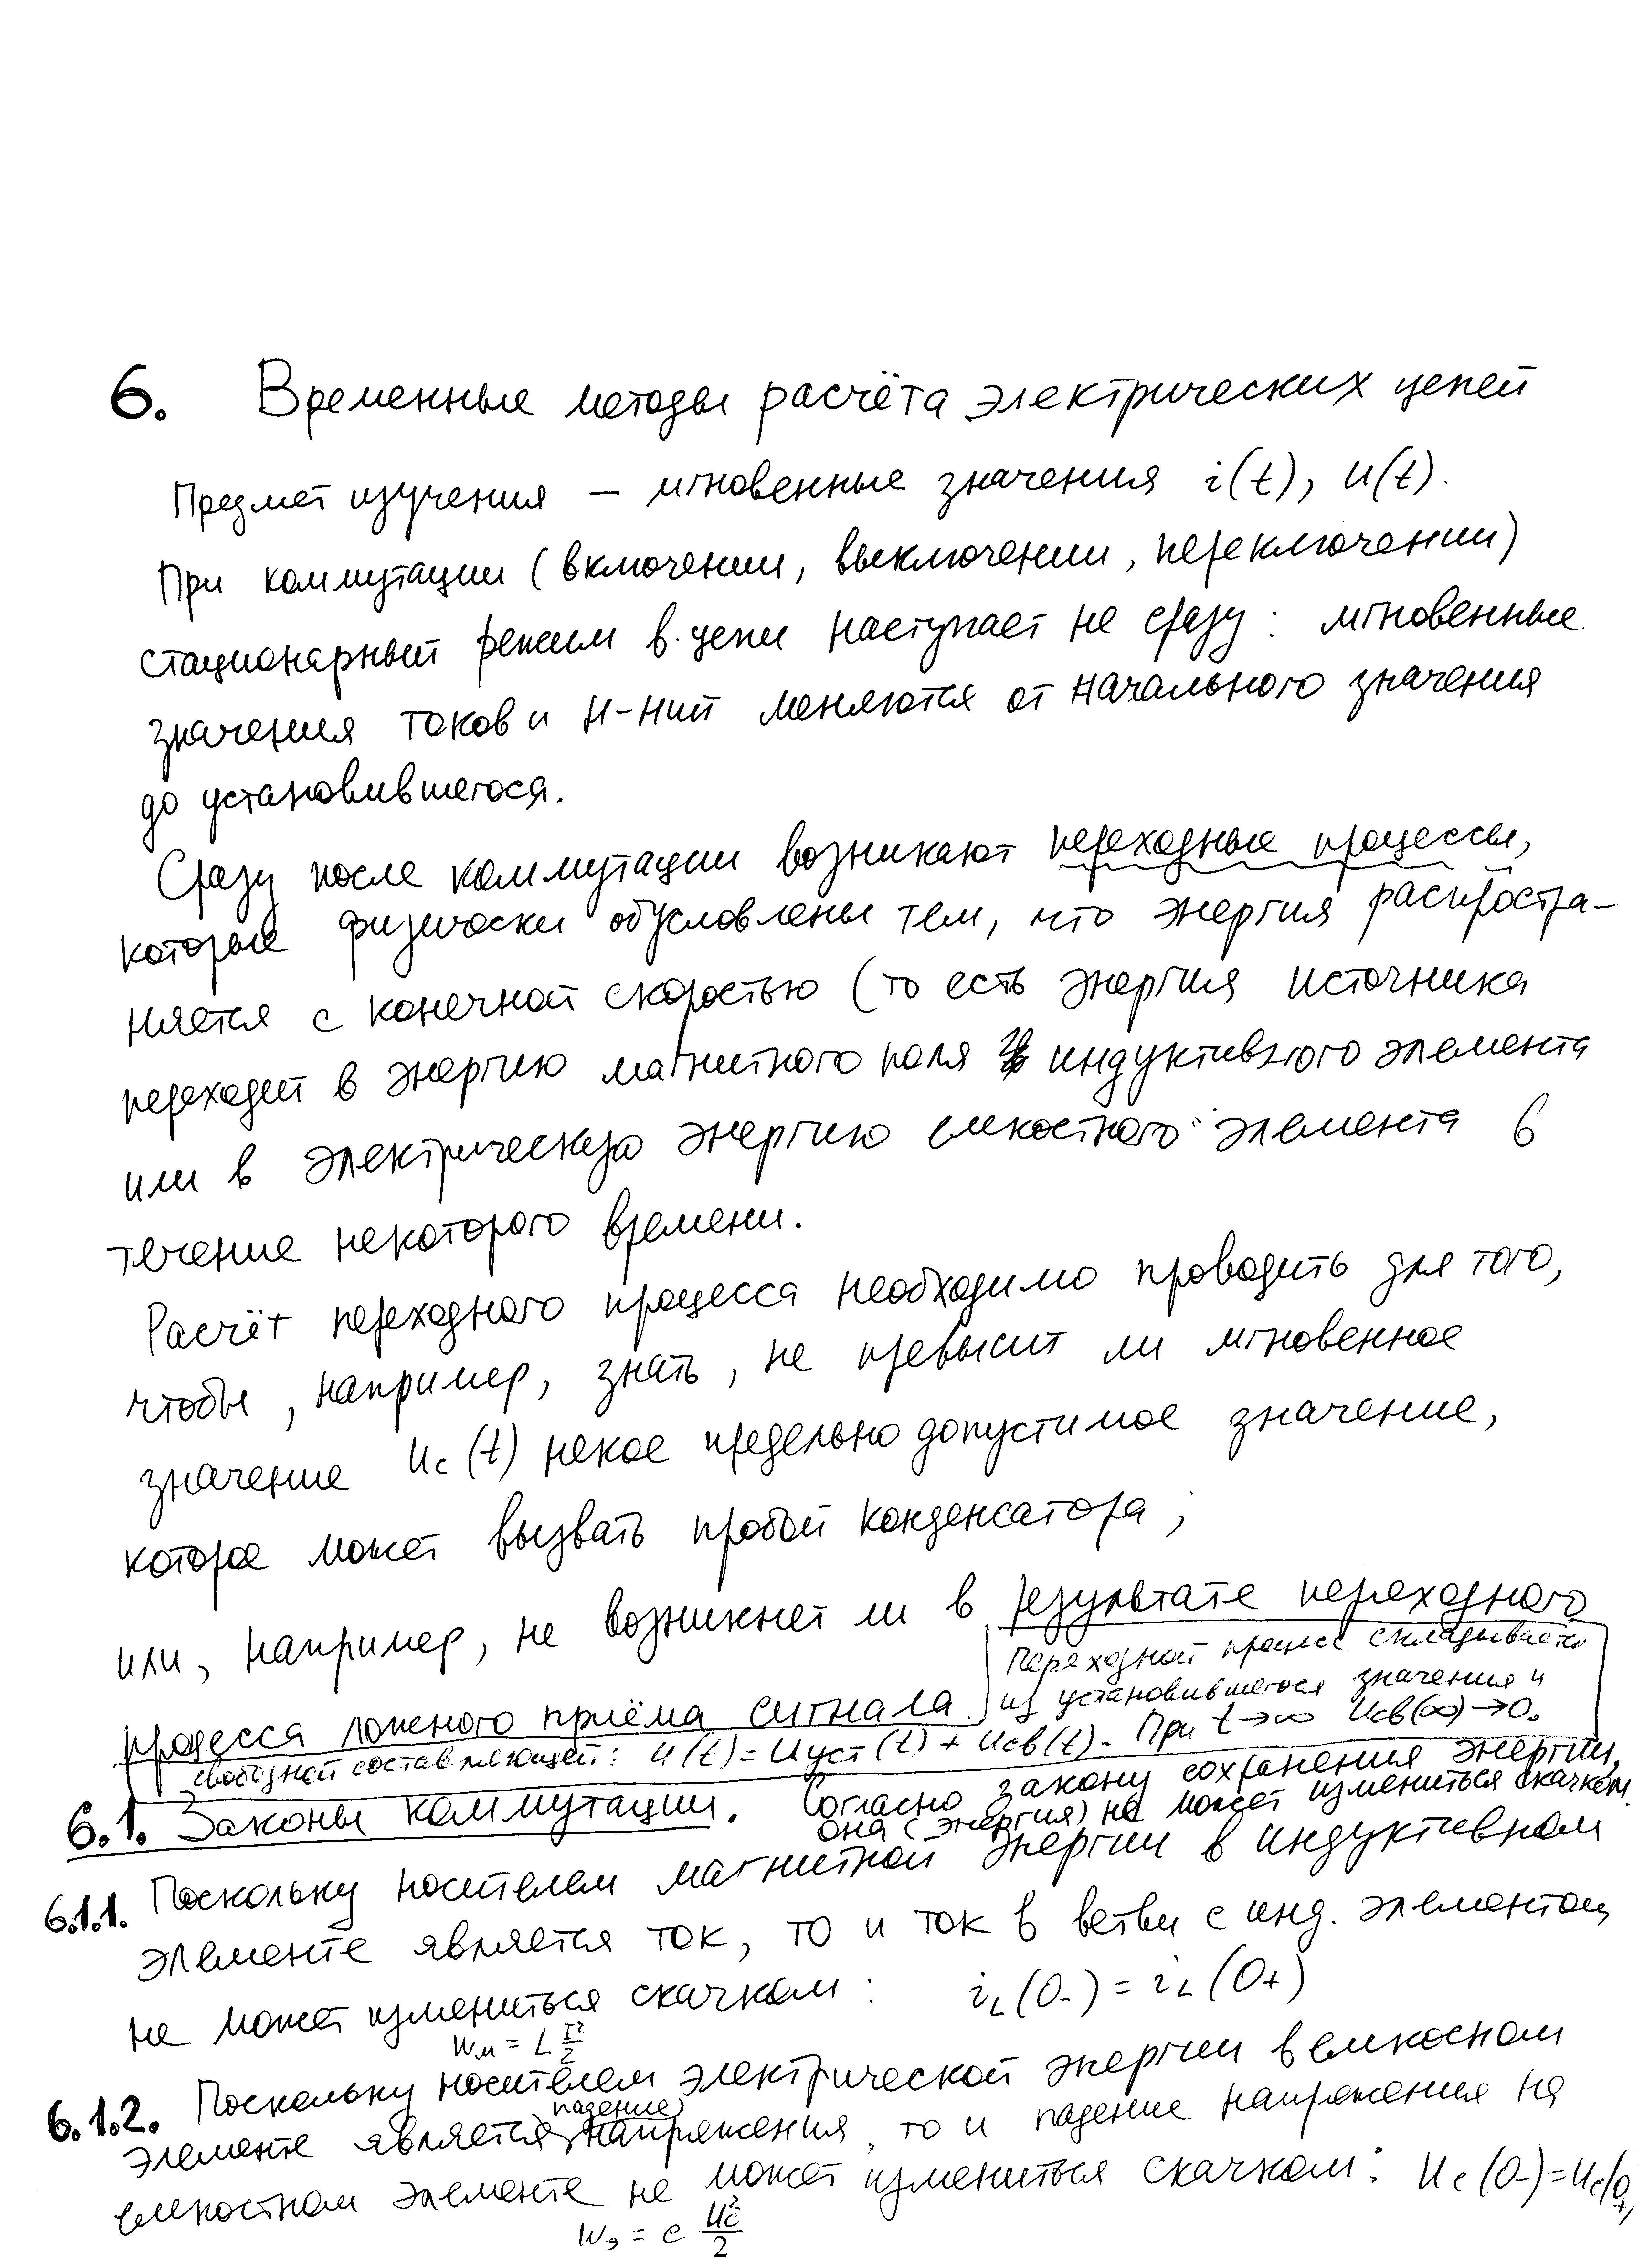 6. Временные методы расчёта электрических цепей
Предмет изучения – мгновенные значения i(t), u(t).
При коммутации (включении, выключении, переключении)
стационарный режим в цепи наступает не сразу: мгновенные
значения токов и н-ний меняются от начального значения
до установившегося.
Сразу после коммутации возникают переходные процессы,
которые физически обусловлены тем, что энергия распростра-
няется с конечной скоростью (то есть энергия источника
переходит в энергию магнитного поля индуктивного элемента
или в электрическую энергию емкостного элемента в
течение некоторого времени.
Расчёт переходного процесса необходимо проводить для того,
чтобы, например, знать, не превысит ли мгновенное
значение uc(t) некое предельно допустимое значение,
которое может вызвать пробой конденсатора;
или, например, не возникнет ли в результате переходного
процесса ложного приёма сигнала.
Переходной процесс складывается
из установившегося значения и
свободной составляющей: u(t) = uуст(t) + uсв(t). При t→∞ uсв(∞)→0.
6.1. Законы коммутации. Согласно закону сохранения энергии,
она (энергия) не может измениться скачком.
6.1.1. Поскольку носителем магнитной энергии в индуктивном
элементе является ток, то и ток в ветви с инд. элементом
не может измениться скачком: iL(0-) = iL(0+)
Wм = L I²/2
6.1.2. Поскольку носителем электрической энергии в емкосном
элементе является падение напряжения, то и падение напряжения на
емкостном элементе не может измениться скачком: Uc(0-) = Uc(0+)
Wэ = C Uc²/2